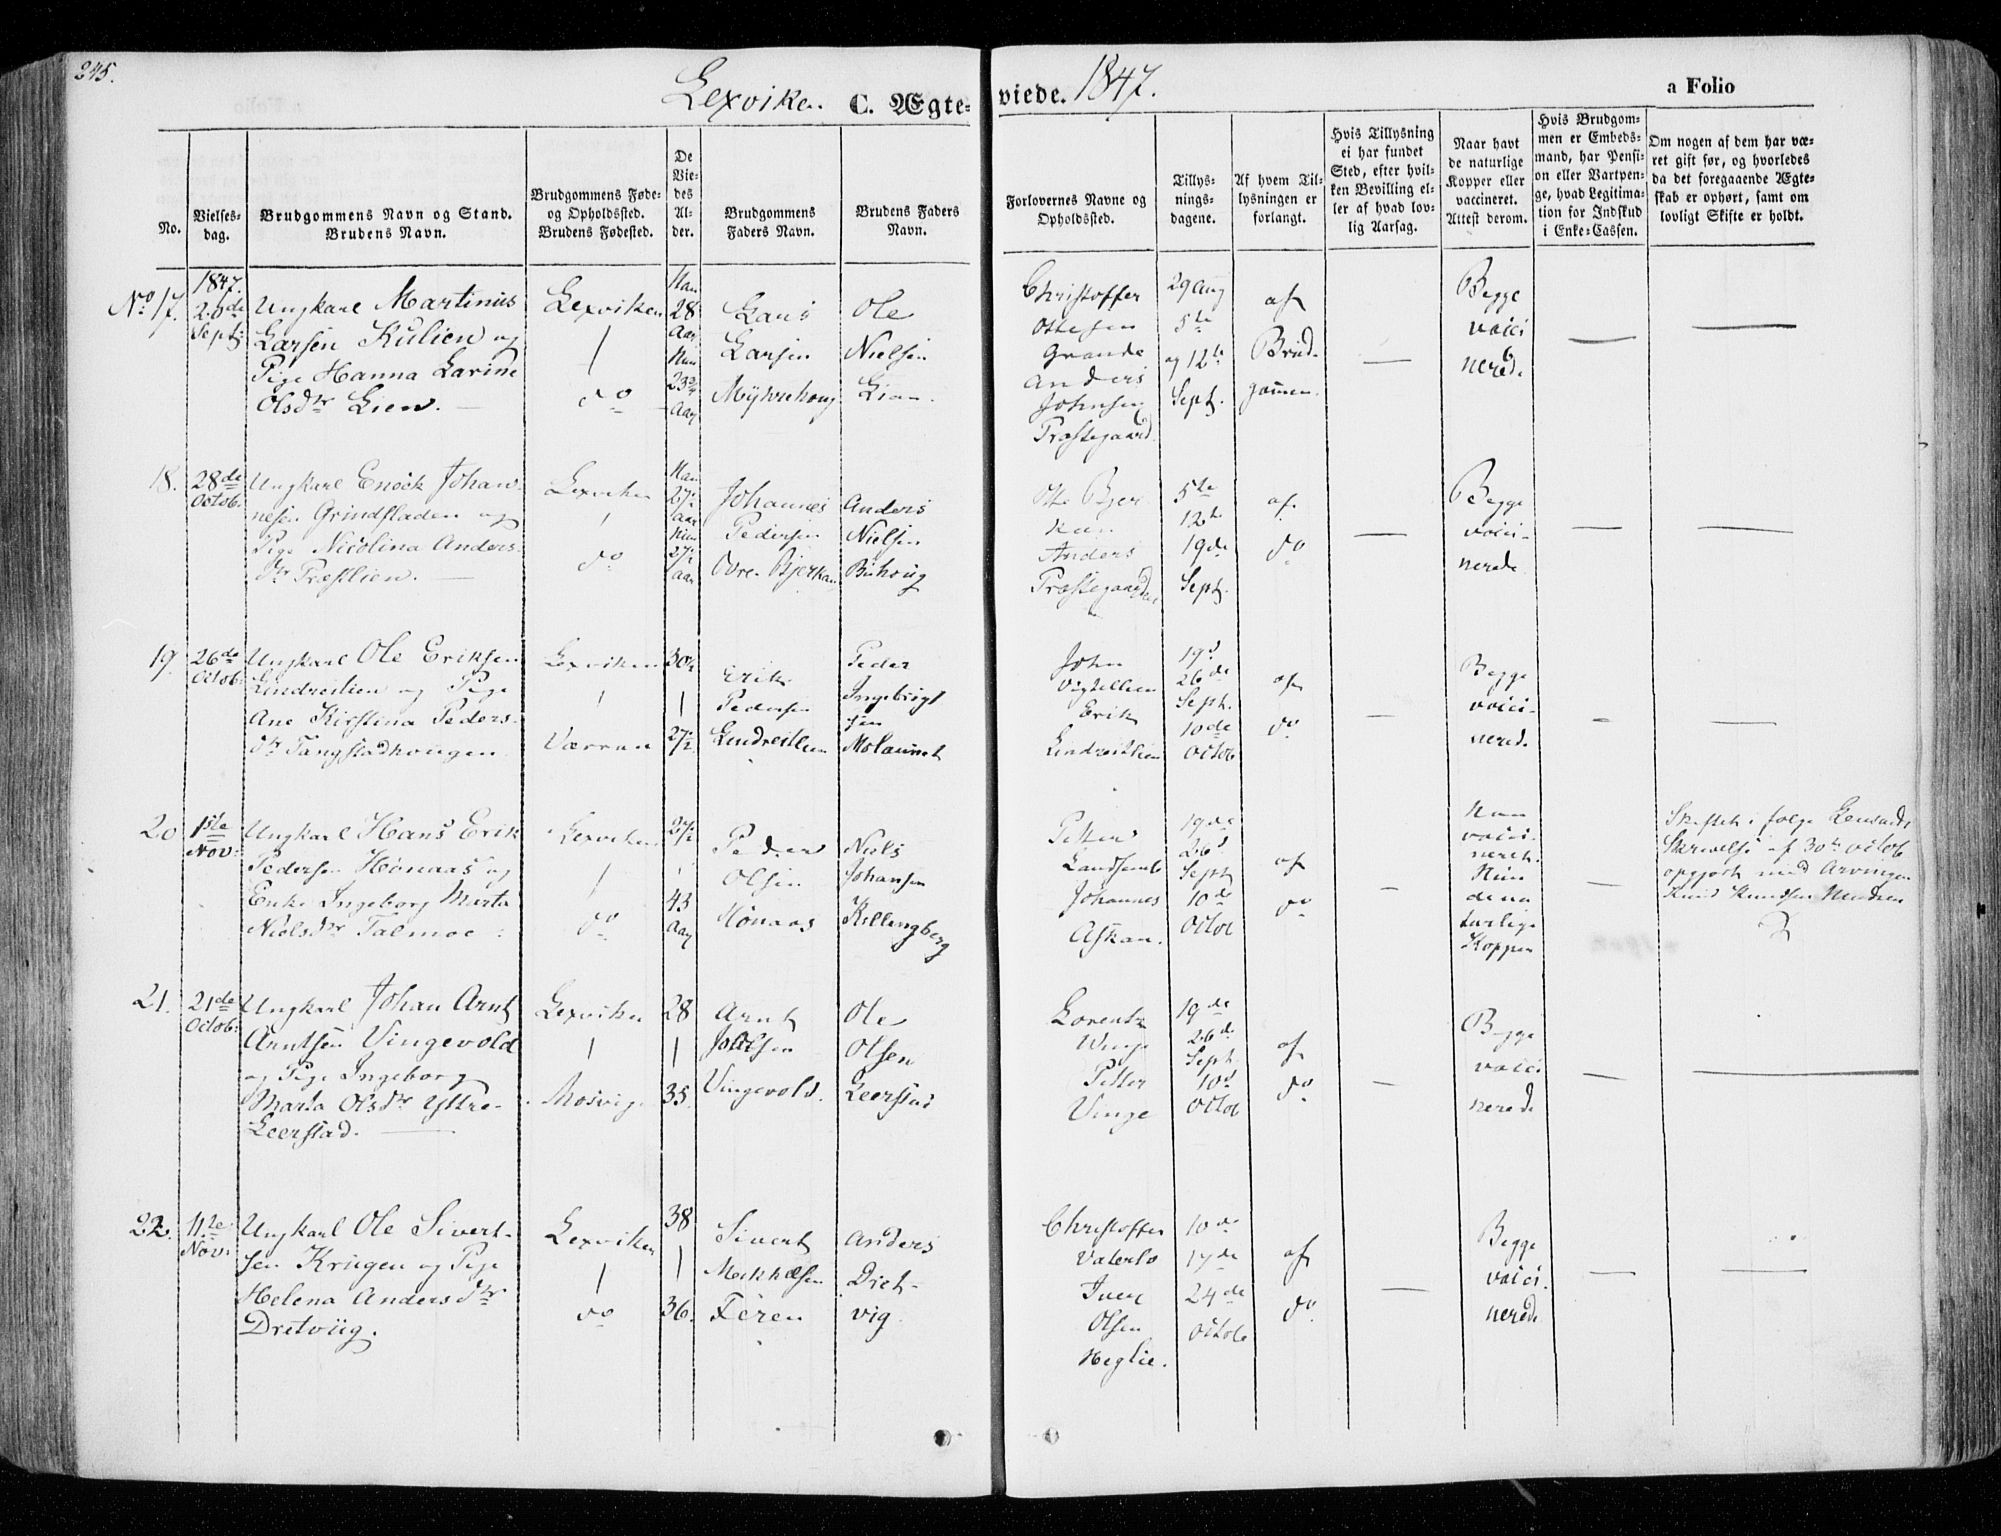 245.
Lexviken C. Ægte- viede. 1847.
a Folio
No.
Vielses-
dag.
Brudgommens Navn og Stand.
Brudens Navn.
Brudgommens Føde-
og Opholdssted.
Brudens Fødested.
De
Vie-
des
Al-
der.
Brudgommens
Faders Navn.
Brudens Faders
Navn.
Forlovernes Navne og
Opholdssted.
Tillys-
nings-
dagene.
Af hvem Til-
lysningen er
forlangt.
Hvis Tillysning
ei har fundet
Sted, efter hvil-
ken Bevilling el-
ler af hvad lov-
lig Aarsag.
Naar havt
de naturlige
Kopper eller
vaccineret.
Attest derom.
Hvis Brudgom-
men er Embeds-
mand, har Pensi-
on eller Vartpen-
ge, hvad Legitima-
tion for Indskud
i Enke-Cassen.
Om nogen af dem har væ-
ret gift før, og hvorledes
da det foregaaende Ægte-
skab er ophørt, samt om
lovligt Skifte er holdt.
No 17.
1847.
20de
Sept:
Ungkarl Martinus
Larsen Kulien og
Pige Hanna Larine
Olsdtr Lien. —
Lexviken
do
Han
28
Aar
Hun
23
Aar
Lars
Larsen
Ole
Nielsen
Lian.
Christoffer
Ottesen
Grande
Anders
Johnsen
Præstegaard.
29 Aug
5te
og 12te
Sept.
af
Brud-
gommen.
—
Begge
vacci
nerede
—
—
18.
28de
Octob.
Ungkarl Enock Johan-
nesen Grindsladen og
Pige Nicolina Anders-
dtr Præstlien. —
Lexviken
do
Han
27½
Aar
Hun
27½
Aar
Johannes
Pedersen
Ovre Bjerkan
Anders
Nielsen
Ole Bjer
kan
Anders
5te
12te
19de
Sept.
af
do
—
Begge
vacci-
nerede
—
—
19.
26de
Octob:
Ungkarl Ole Eriksen
Lindreitlien og Pige
Ane Kirstina Peders-
dtr Tangstadhougen
Lexviken
Værran
30½
27½
Erik
Pedersen
Lindreitlien
Peder
Ingebrigt
sen
John
Erik
Lindreitlien
19de
26de
Sept.
10de
Octob
af
do
—
Begge
vacci-
nerede
—
—
20
1ste
Nov:
Ungkarl Hans Erik
Pedersen Hønaas og
Enke Ingeborg Marta
Nielsdtr Talmoe
Lexviken
do
27½
43
Aar
Peder
Olsen
Hønaas
Niels
Johansen
Killingberg
Petter
Johannes
Askan.
19de
26d
Sept
10de
Octob
af
do
—
Han
vacci-
neret.
Hun
de na
turlige
Kopper
—
Skiftet i følge Lensmds
Skrivelse af 30te Octob
opgjort med Arvingen
Knud Knudsen
21.
21de
Octob:
Ungkarl Johan Arnt
Arntsen Vingevold
og Pige Ingeborg
Marta Olsdtr Yttre-
Leerstad. —
Lexviken
Mosvig.
28
35.
Arnt
Vingevold.
Ole
Olsen
Leerstad
Lorentz
Vinge
Petter
Vinge
19de
26de
Sept.
10d
Octob
af
do
—
Begge
vacci
nerede
—
—
22.
11te
Nov:
Ungkarl Ole Sivert-
sen Krügen og Pige
Helena Andersdtr
Dretviig.
Lexviken
do
38
36.
Sivert
Mikkelsen
Feren
Anders
Driet-
vig
Christoffer
Vaterlo
Iver
Olsen
Heglie.
10de
17de
24de
Octob
af
do.
—
Begge
vacci-
nerede
—
—